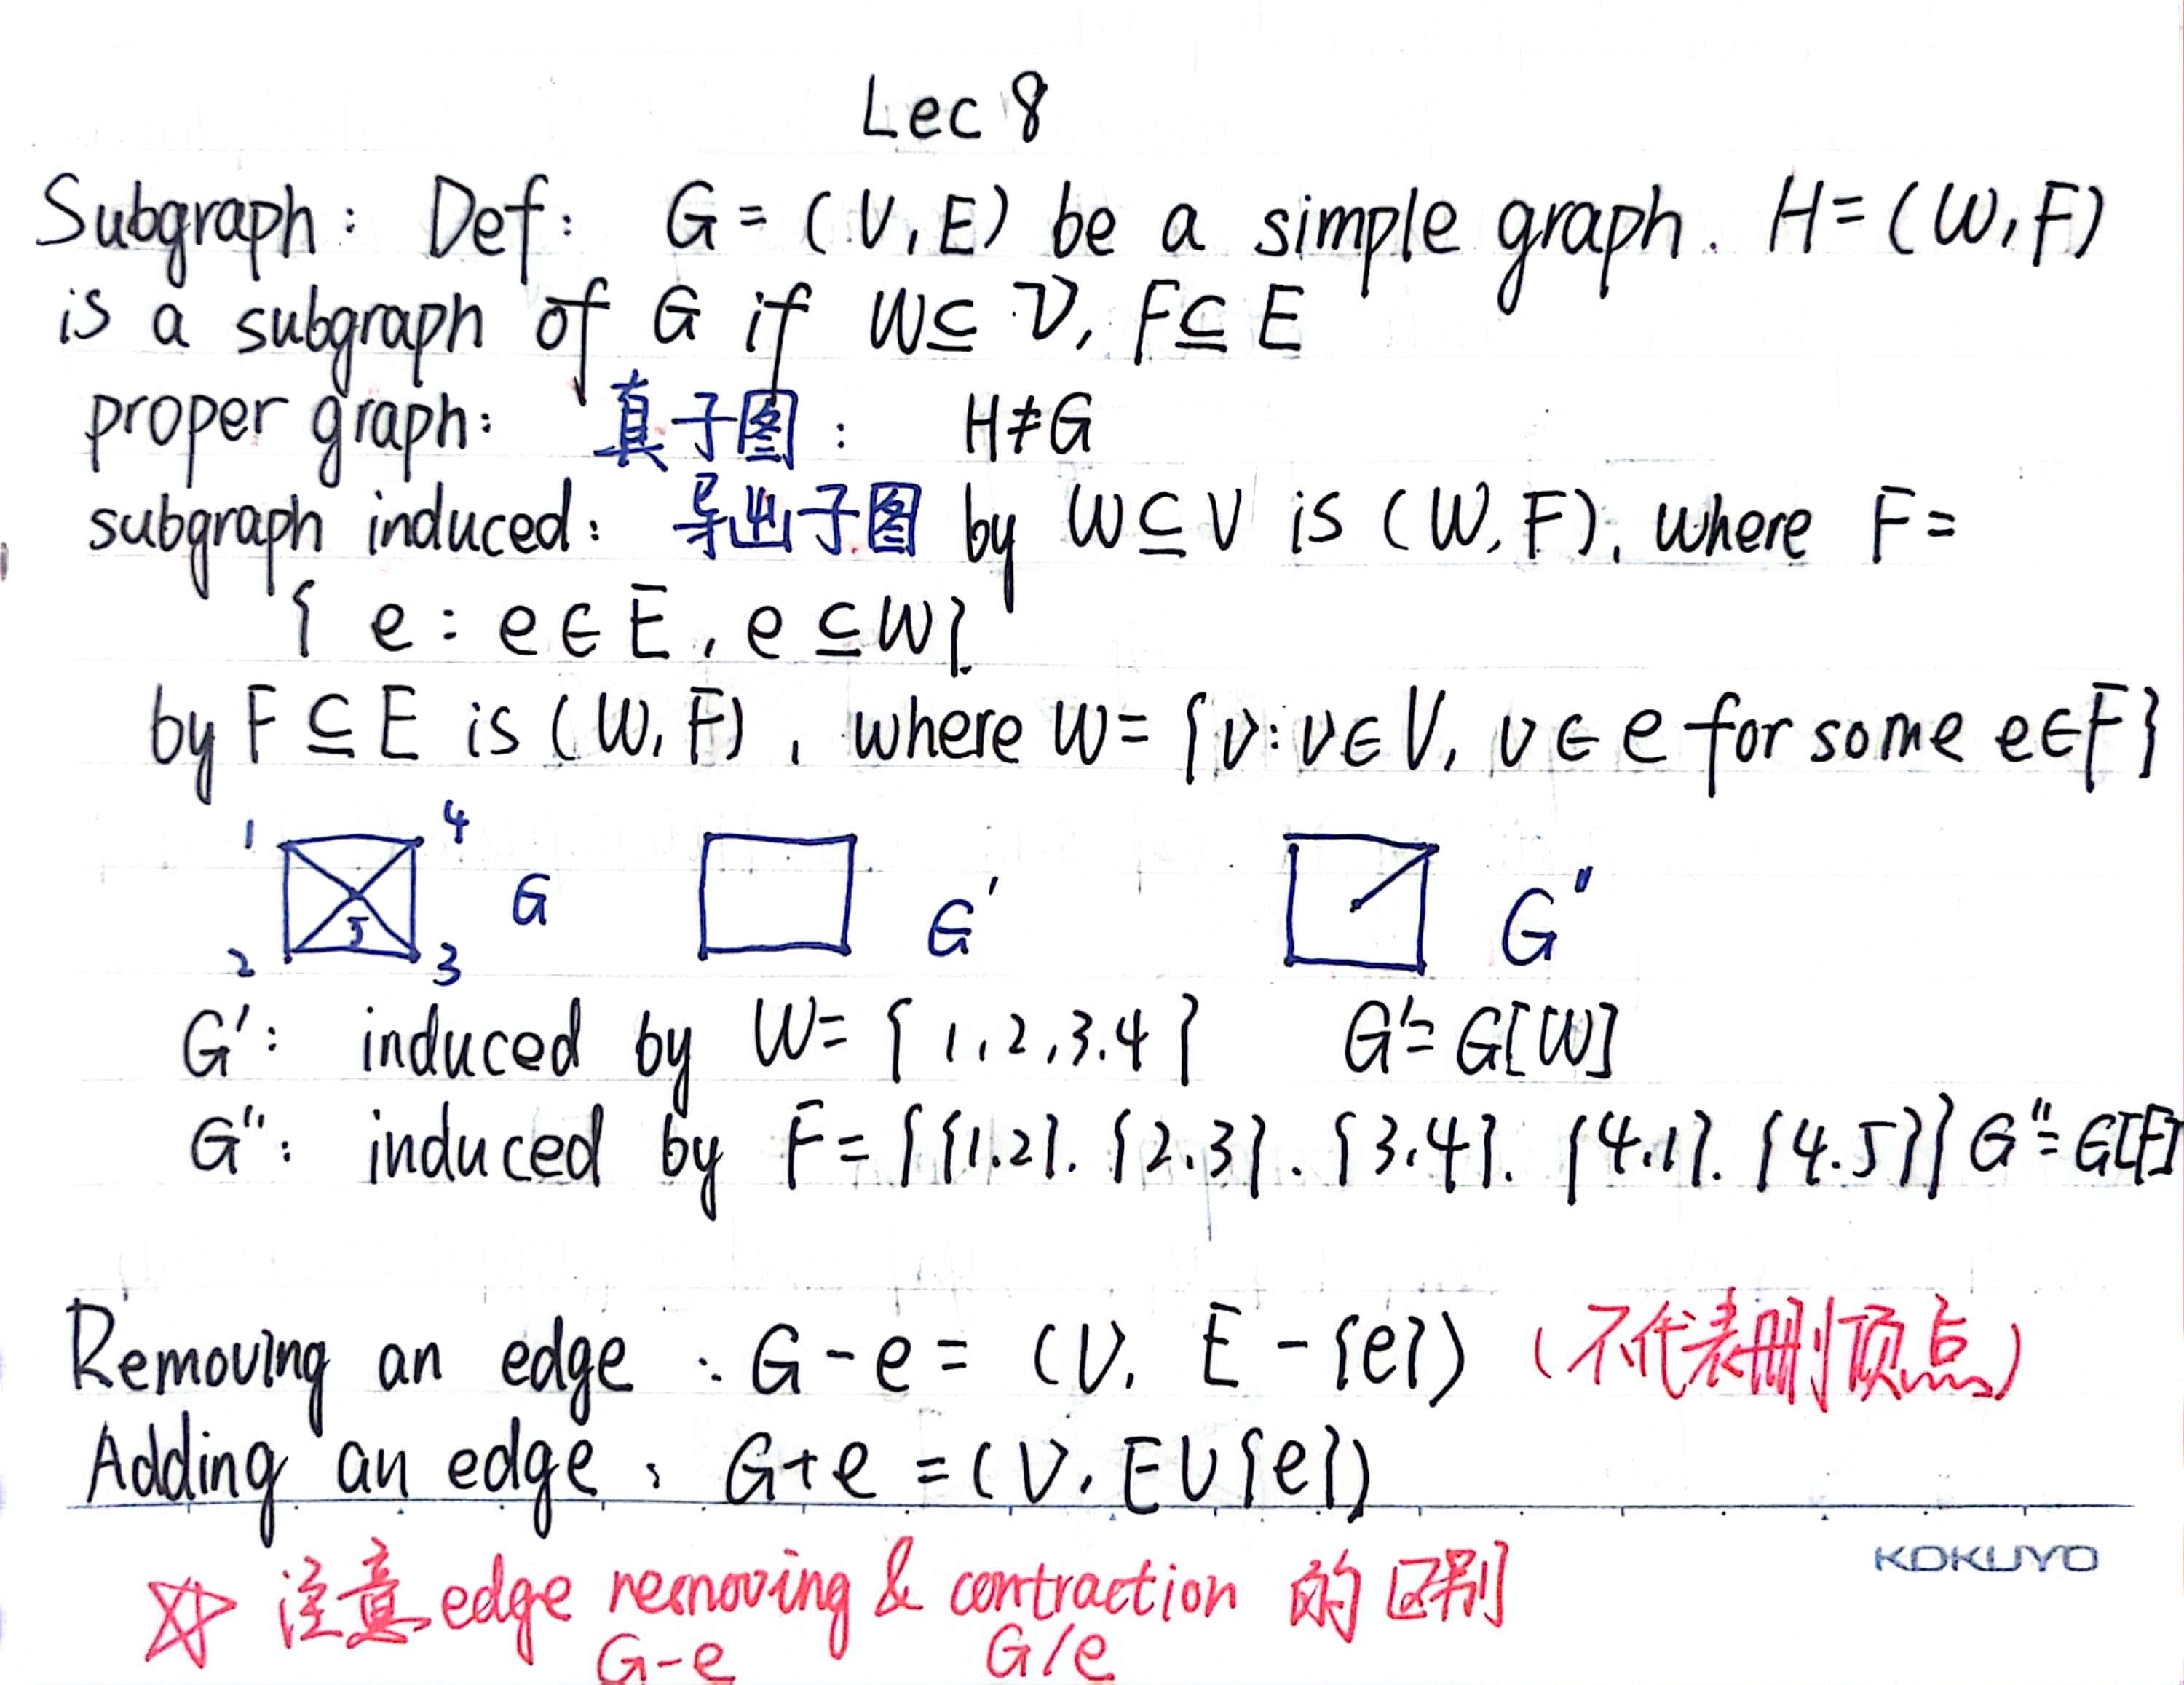 Lec 8
Subgraph: Def: G = (V, E) be a simple graph. H = (W, F)
is a subgraph of G if W ⊆ V, F ⊆ E
proper graph: 真子图: H≠G
subgraph induced: 导出子图 by W ⊆ V is (W, F), where F =
{ e : e ∈ E, e ⊆ W}
by F ⊆ E is (W, F), where W = {v: v ∈ V, v ∈ e for some e∈F}
1 4 G G' G"
5
2 3
G': induced by W = {1,2,3.4} G' = G[W]
G": induced by F = {{1.2}. {2.3}. {3.4}. {4.1}. {4.5}} G" = G[F]
Removing an edge: G - e = (V, E - {e}) (不代表删顶点)
Adding an edge: G + e = (V, E ∪ {e})
KOKUYO
☆ 注意 edge removing & contraction 的区别
G-e G/e